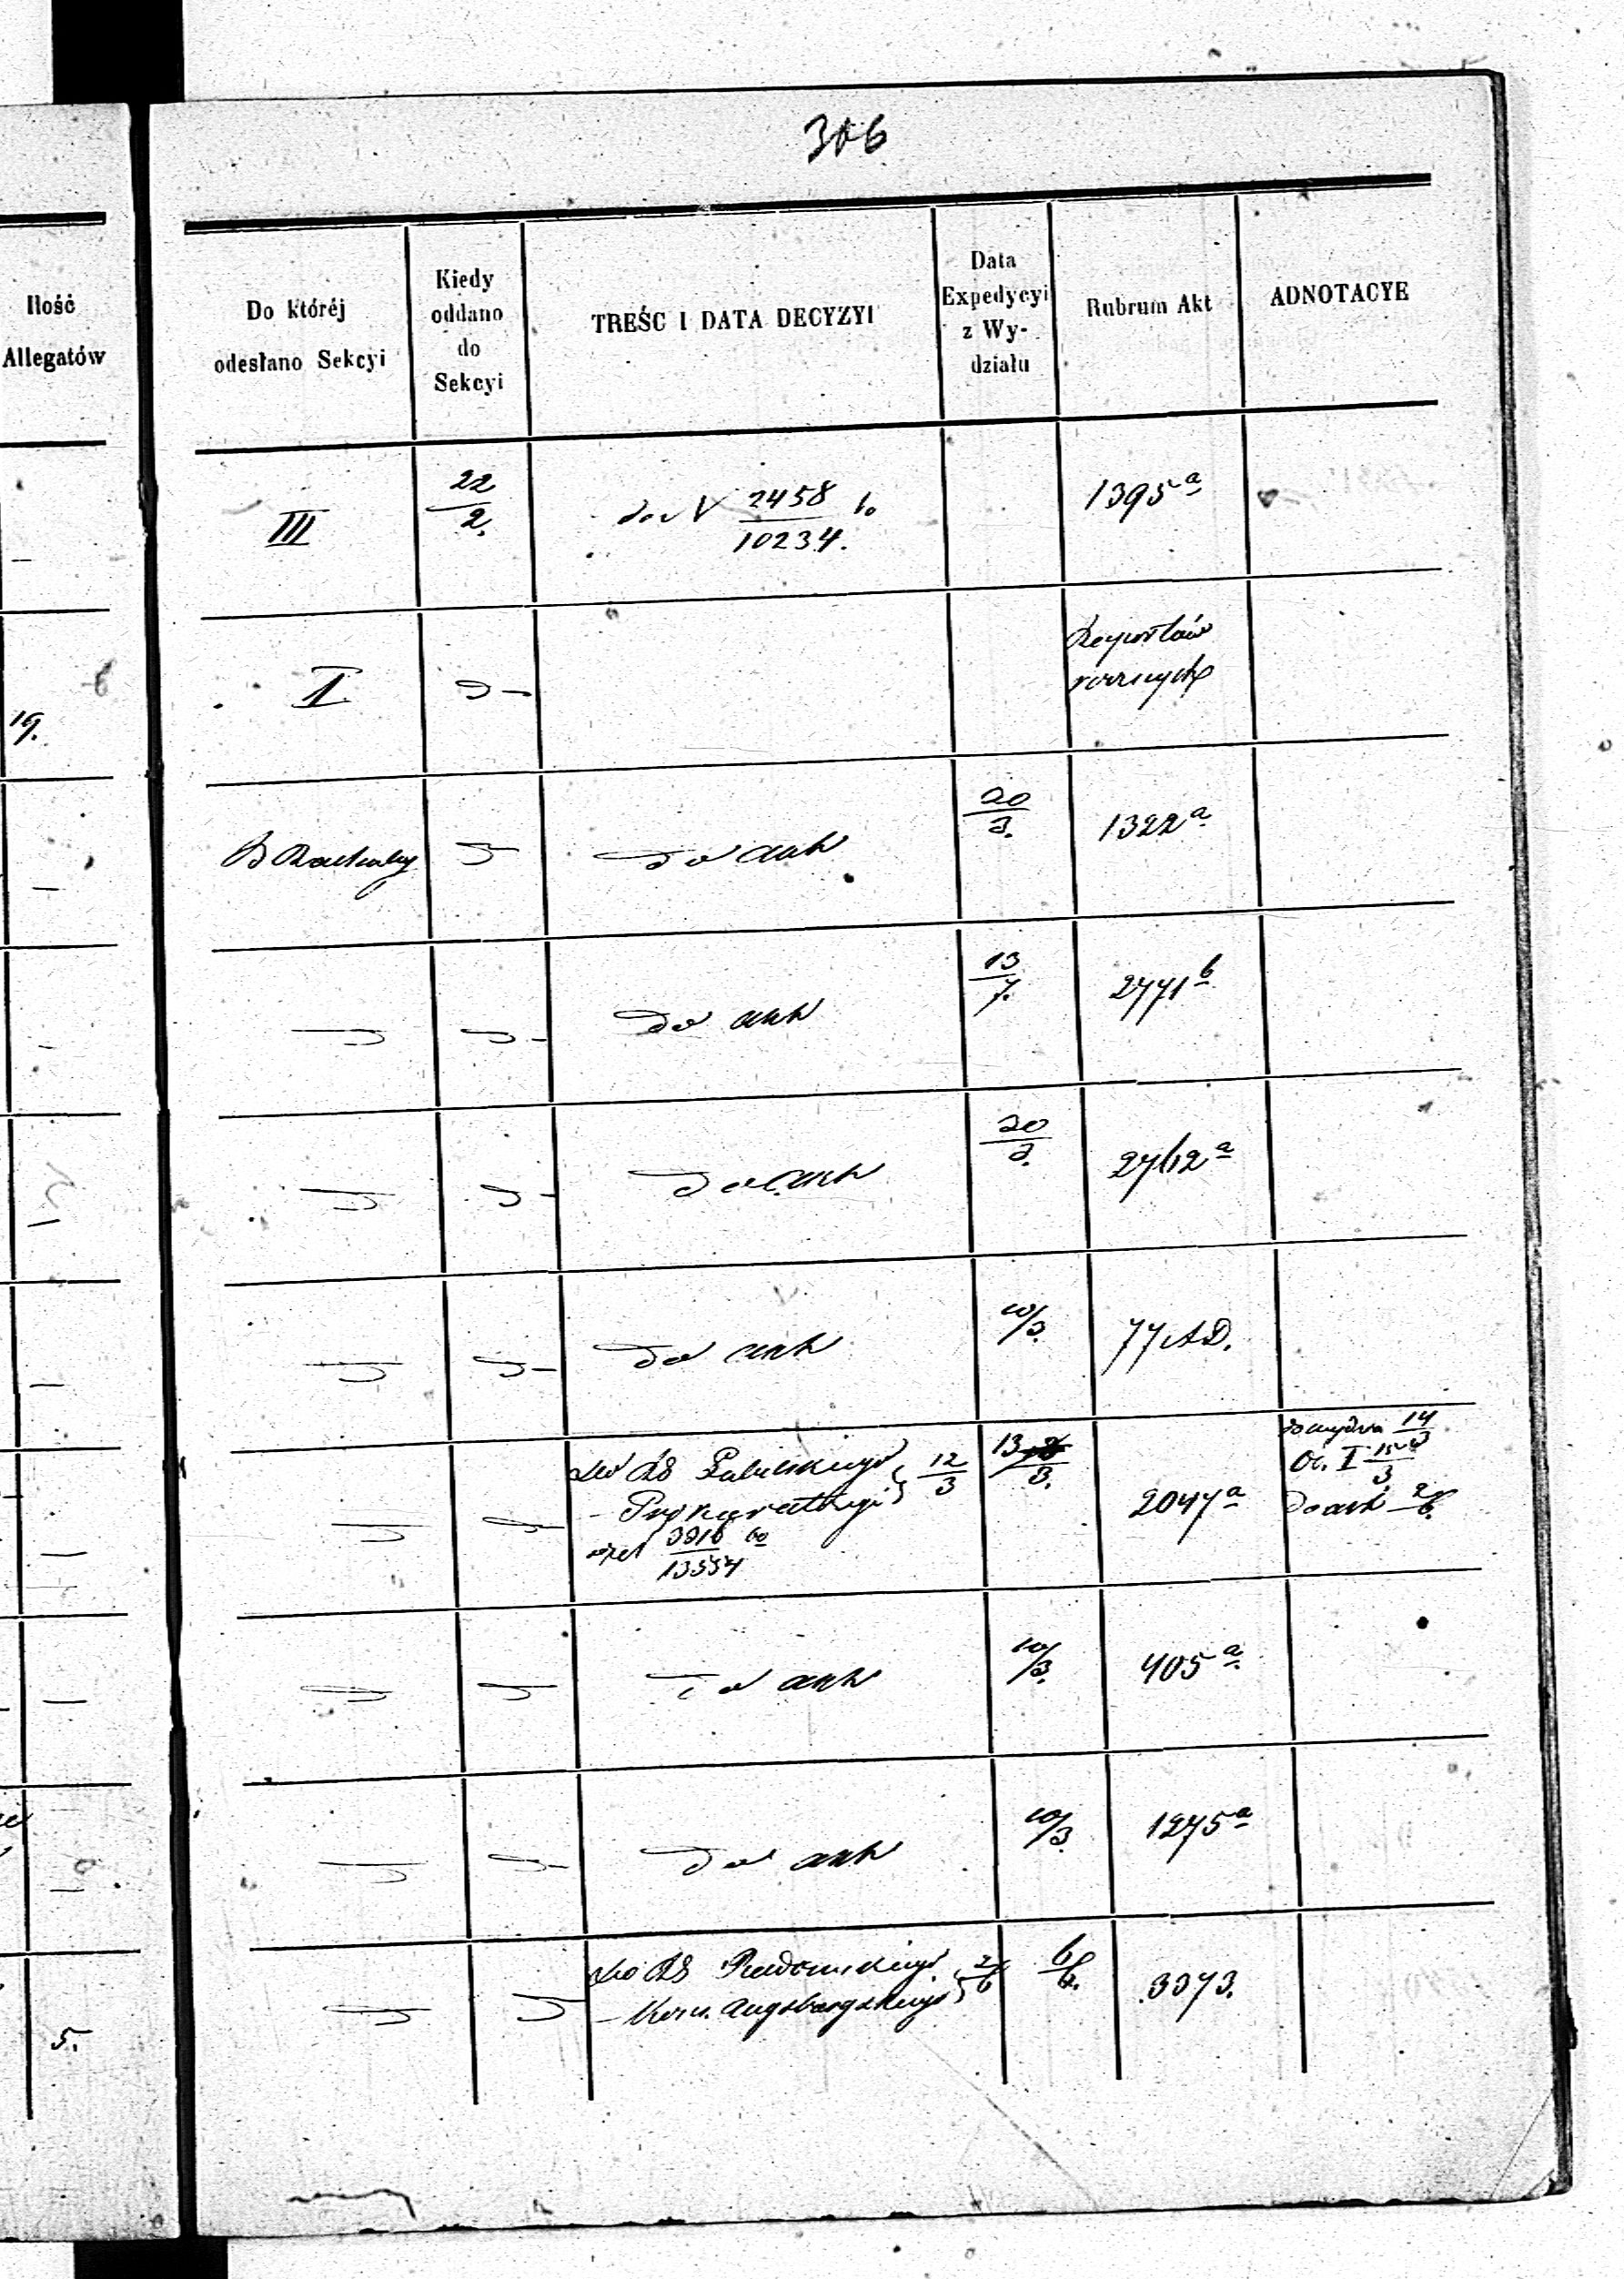 306
Ilość
Allegatów
Do któréj
odesłano Sekcyi
Kiedy
oddano
do
Sekcyi
TREŚC I DATA DECYZYI
Data
Expedycyi
z Wy-
działu
Rubrum Akt
ADNOTACYE
III
22/2.
V 2458/10234.
1395 a
19.
I
Reportów
1322 a
do akt
20/3.
do akt
13/7.
2771 b
do akt
20/3.
2762 a
do akt
10/3.
77 AD.
do RG Lubelskiego
- Prokuratoryi
12/3
13/3.
2047 a
14/3
I 15/3
do akt
do akt
10/3.
405 a
do akt
10/3.
1275 a
do RG Radomskiego
- Kom. Augsburgskiego
2/6
6/6.
3373.
5.